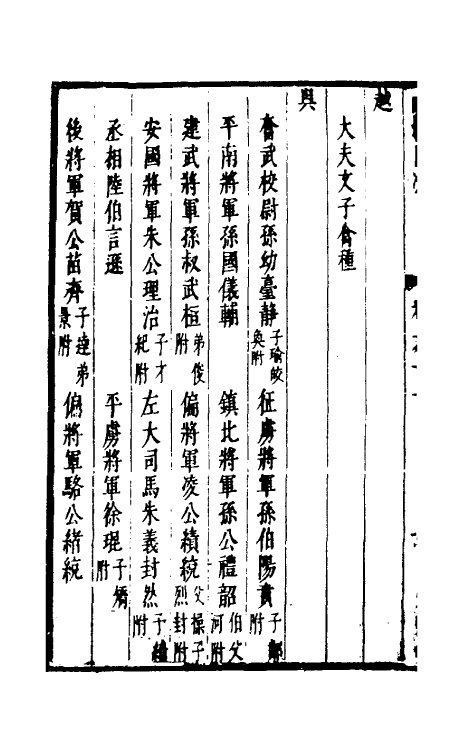 越
大夫文子會種
奮武校尉孫幼臺靜子瑜皎奐附 征虜將軍孫伯陽賁子鄰附
平南將軍孫國儀輔 鎮北將軍孫公禮韶伯父河附
建武將軍孫叔武桓弟俊附 偏將軍凌公績統父操子烈封附
安國將軍朱公理治子才紀附 左大司馬朱義封然子績附
丞相陸伯言遜 平虜將軍徐琨子矯附
後將軍賀公苗齊子達弟景附 偏將軍駱公緒統